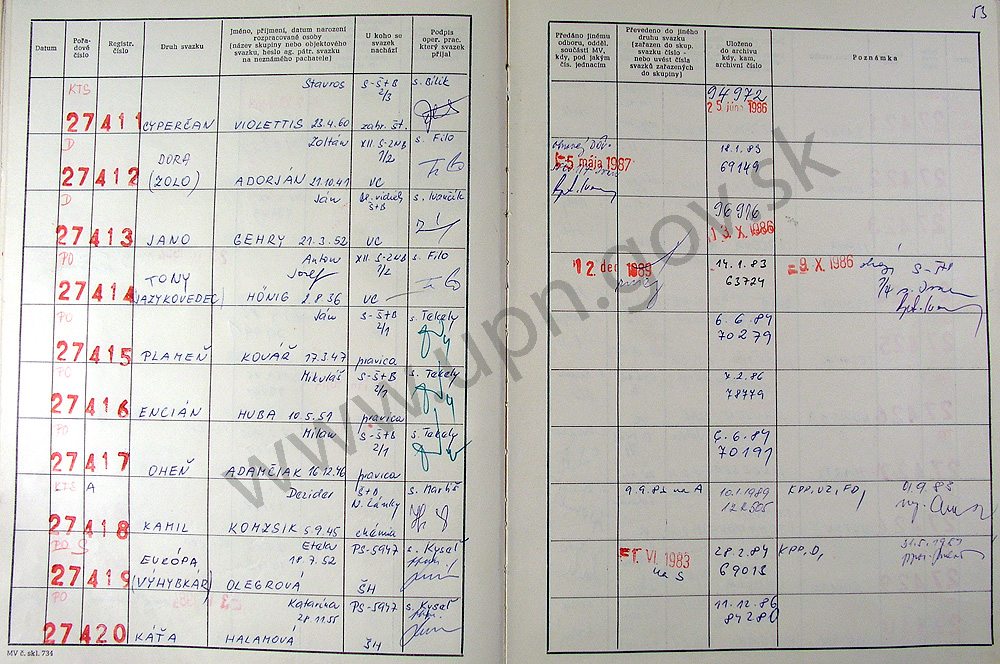 53
Datum
Pořa-
dové
číslo
Registr.
číslo
Druh svazku
Jméno, příjmení, datum narození
rozpracované osoby
(název skupiny nebo objektového
svazku, heslo ag. pátr. svazku
na neznámého pachatele)
U koho se
svazek
nachází
Podpis
oper. prac.
který svazek
přijal
Předáno jinému
odboru, odděl.
součásti MV,
kdy, pod jakým
čís. jednacím
Převedeno do jiného
druhu svazku
(zařazen do skup.
svazku číslo -
nebo uvést čísla
svazků zařazených
do skupiny)
Uloženo
do archivu
kdy, kam,
archivní číslo
Poznámka
KTS
27411
CYPERČAN
Stavros
VIOLETTIS 23.4.60
S-ŠtB
2/3
zahr. št.
s. Bilik
94972
25. júna 1986
D
27412
DORA
(ZOLO)
Zoltán
ADORJÁN 21.10.41
XII. S-ZNB
7/2
VC
s. Filo
-5. mája 1987
18.1.83
69149
D
27413
JANO
Ján
GEHRY 21.3.52
ŠtB
VC
s. Ivančík
96916
3. X. 1986
PO
27414
TONY
(JAZYKOVEDEC)
Anton
Jozef
HÖNIG 2.8.36
XII. S-ZNB
7/2
VC
s. Filo
12. dec 1989
14.1.83
63724
-9. X. 1986
PO
27415
PLAMEŇ
Ján
KOVÁŘ 17.3.47
S-ŠtB
2/1
pravica
s. Takely
6.6.84
70279
PO
27416
ENCIÁN
Mikuláš
HUBA 10.5.51
S-ŠtB
2/1
pravica
s. Takely
78779
PO
27417
OHEŇ
Milan
ADAMČIAK 16.12.46
S-ŠtB
2/1
pravica
s. Takely
6.6.84
70191
KTS A
27418
KAMIL
Dezider
KOMZSIK 5.9.45
ŠtB
chémia
9.9.83 na A
10.1.1989
KPP, VZ, FD,
PO S
27419
EURÓPA
(VÝHYBKÁR)
Etela
18.7.52
OLEGROVÁ
PS-5947
ŠH
s. Kyseľ
-1. VI. 1983
na S
28.2.84
69013
KPP, D,
PO
27420
KÁŤA
Katarína
28.11.55
HALAMOVÁ
PS-5947
ŠH
s. Kyseľ
11.12.86
84280
MV č. skl. 734
www.upn.gov.sk